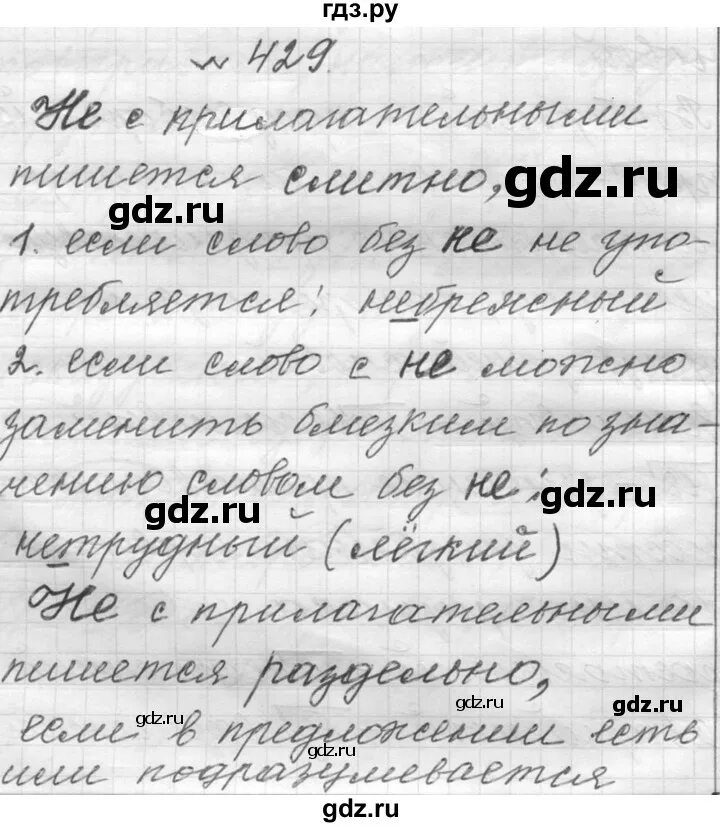 гдз.ру
№ 429.
Не с прилагательными
пишется слитно,
gdz.ru
gdz.ru
1. если слово без не не упо-
требляется: небрежный
gdz.ru
2. если слово с не можно
заменить близким по зна-
чению словом без не:
gdz.ru
gdz.ru
нетрудный (лёгкий)
Не с прилагательными
пишется раздельно,
gdz.ru
gdz.ru
если в предложении есть
gdz.ru
или подразумевается
gdz.ru